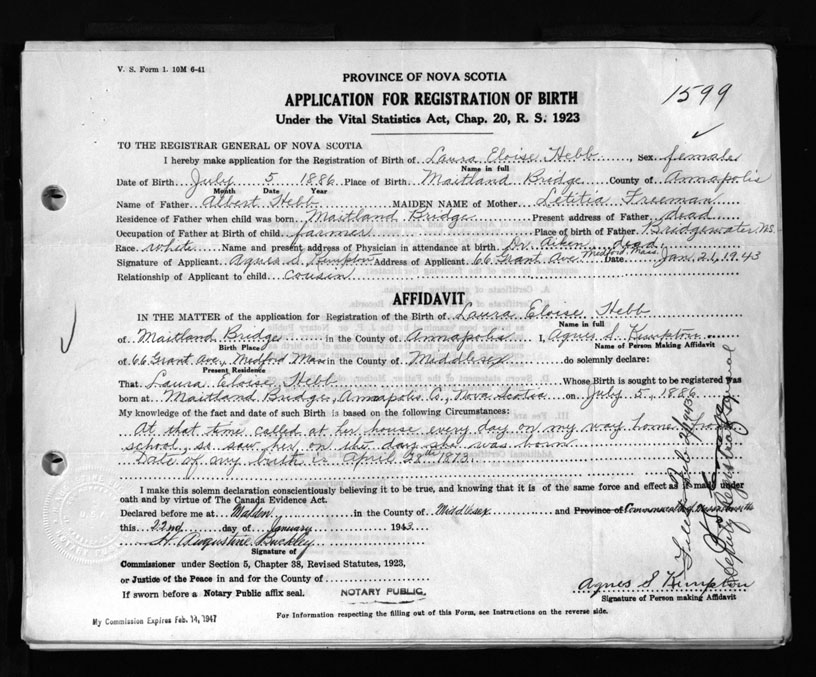 V. S. Form 1. 10M 6-41
PROVINCE OF NOVA SCOTIA
1599
APPLICATION FOR REGISTRATION OF BIRTH
Under the Vital Statistics Act, Chap. 20, R. S. 1923
TO THE REGISTRAR GENERAL OF NOVA SCOTIA
I hereby make application for the Registration of Birth of Laura Eloise Hebb, Sex female
Name in full
Date of Birth July 5 1886 Place of Birth Maitland Bridge County of Annapolis
Month Date Year
Name of Father Albert Hebb MAIDEN NAME of Mother Letitia Freeman
Residence of Father when child was born Maitland Bridge Present address of Father dead
Occupation of Father at Birth of child farmer Place of birth of Father Bridgewater N.S.
Race white Name and present address of Physician in attendance at birth Dr. Aiken dead
Signature of Applicant Agnes S Kempton Address of Applicant 66 Grant Ave Medford Mass. Date Jan 21, 1943
Relationship of Applicant to child cousin
AFFIDAVIT
IN THE MATTER of the application for Registration of the Birth of Laura Eloise Hebb
Name in full
of Maitland Bridge in the County of Annapolis I, Agnes S Kempton
Birth Place Name of Person Making Affidavit
of 66 Grant Ave, Medford Mass in the County of Middlesex do solemnly declare:
Present Residence
That Laura Eloise Hebb Whose Birth is sought to be registered was
born at Maitland Bridge, Annapolis Co, Nova Scotia on July 5, 1886
My knowledge of the fact and date of such Birth is based on the following Circumstances:
At that time called at her house every day on my way home from
school, so saw her on the day she was born
Date of my birth is April 28th 1873.
I make this solemn declaration conscientiously believing it to be true, and knowing that it is of the same force and effect as if made under
oath and by virtue of The Canada Evidence Act.
Declared before me at Malden in the County of Middlesex and Province of Commonwealth of Massachusetts
this 22nd day of January 1943
H. Augustine Buckley
Signature of
Commissioner under Section 5, Chapter 38, Revised Statutes, 1923,
or Justice of the Peace in and for the County of
If sworn before a Notary Public affix seal. NOTARY PUBLIC.
Agnes S Kempton
Signature of Person making Affidavit
My Commission Expires Feb. 14, 1947
For Information respecting the filling out of this Form, see Instructions on the reverse side.
Filed Feb 2/1943
Deputy Registrar General